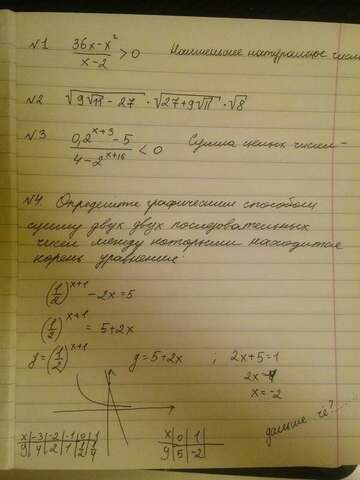 №1 (36x-x²)/(x-2) > 0 Наименьшее натуральное число
№2 √(9√11 - 27) · √(27+9√11) · √8
№3 (0,2^(x+3) - 5)/(4-2^(x+16)) < 0 Сумма целых чисел -
№4 Определите графическим способом
сумму двух двух последовательных
чисел между которыми находится
корень уравнения:
(1/2)^(x+1) - 2x = 5
(1/2)^(x+1) = 5+2x
y=(1/2)^(x+1) y=5+2x ; 2x+5=1
2x=-4
x=-2
дальше чё?....
x|-3|-2|-1|0|1
y|4|2|1|1/2|1/4
x|0|1|
y|5|-2|